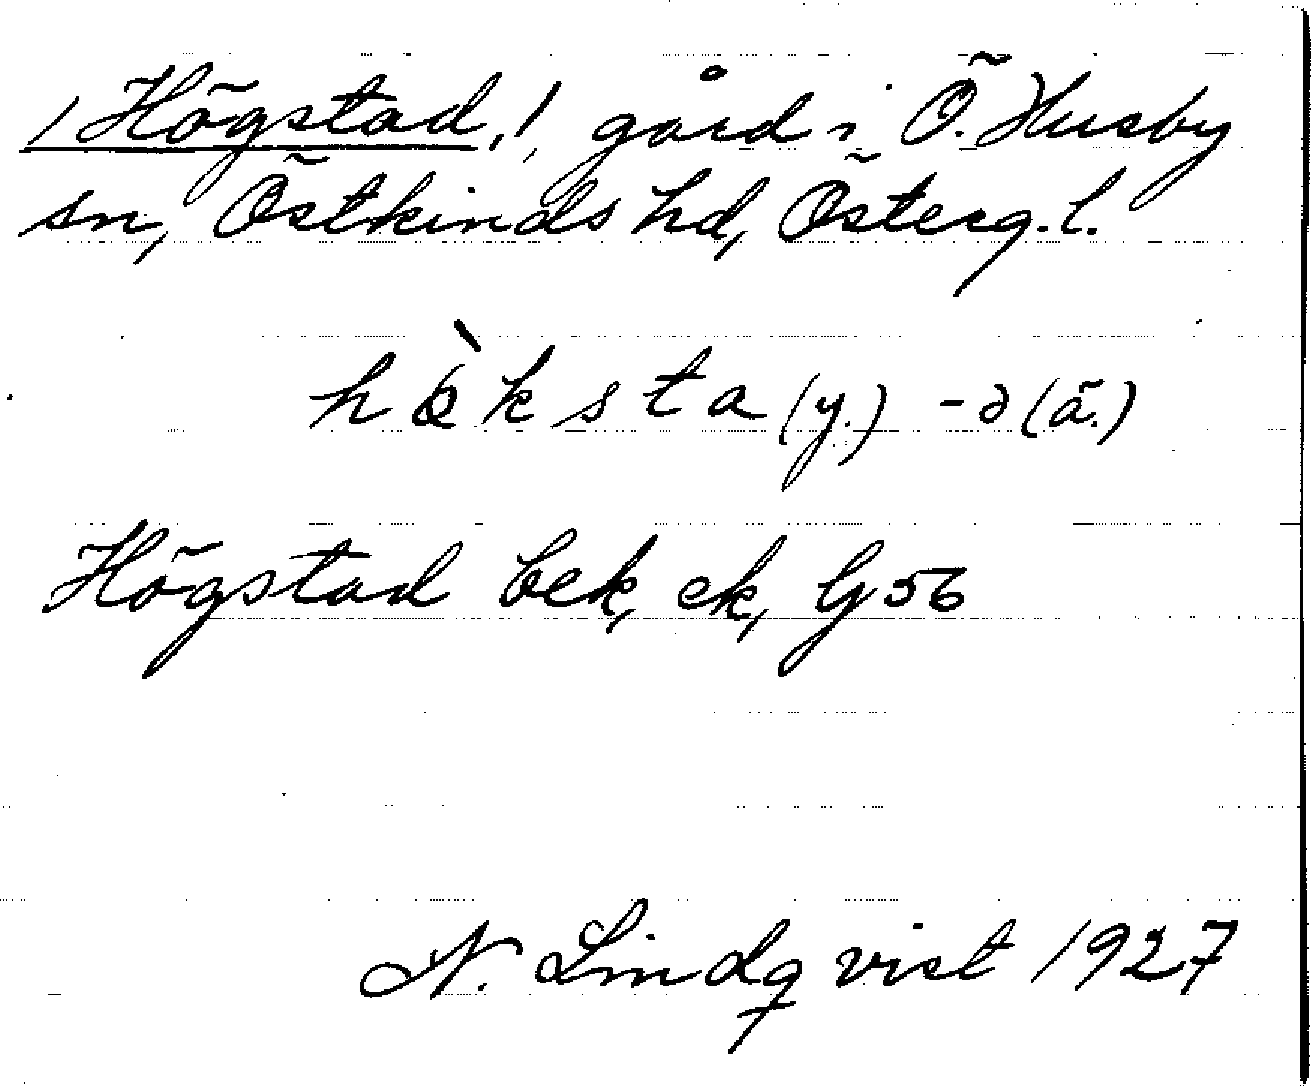 /Högstad,/, gård i Ö. Husby
sn, Östkinds hd, Österg. l.
hö̀ksta (y.) -ə (ä.)
Högstad bek, ek, Gj 56
N. Lindqvist 1927